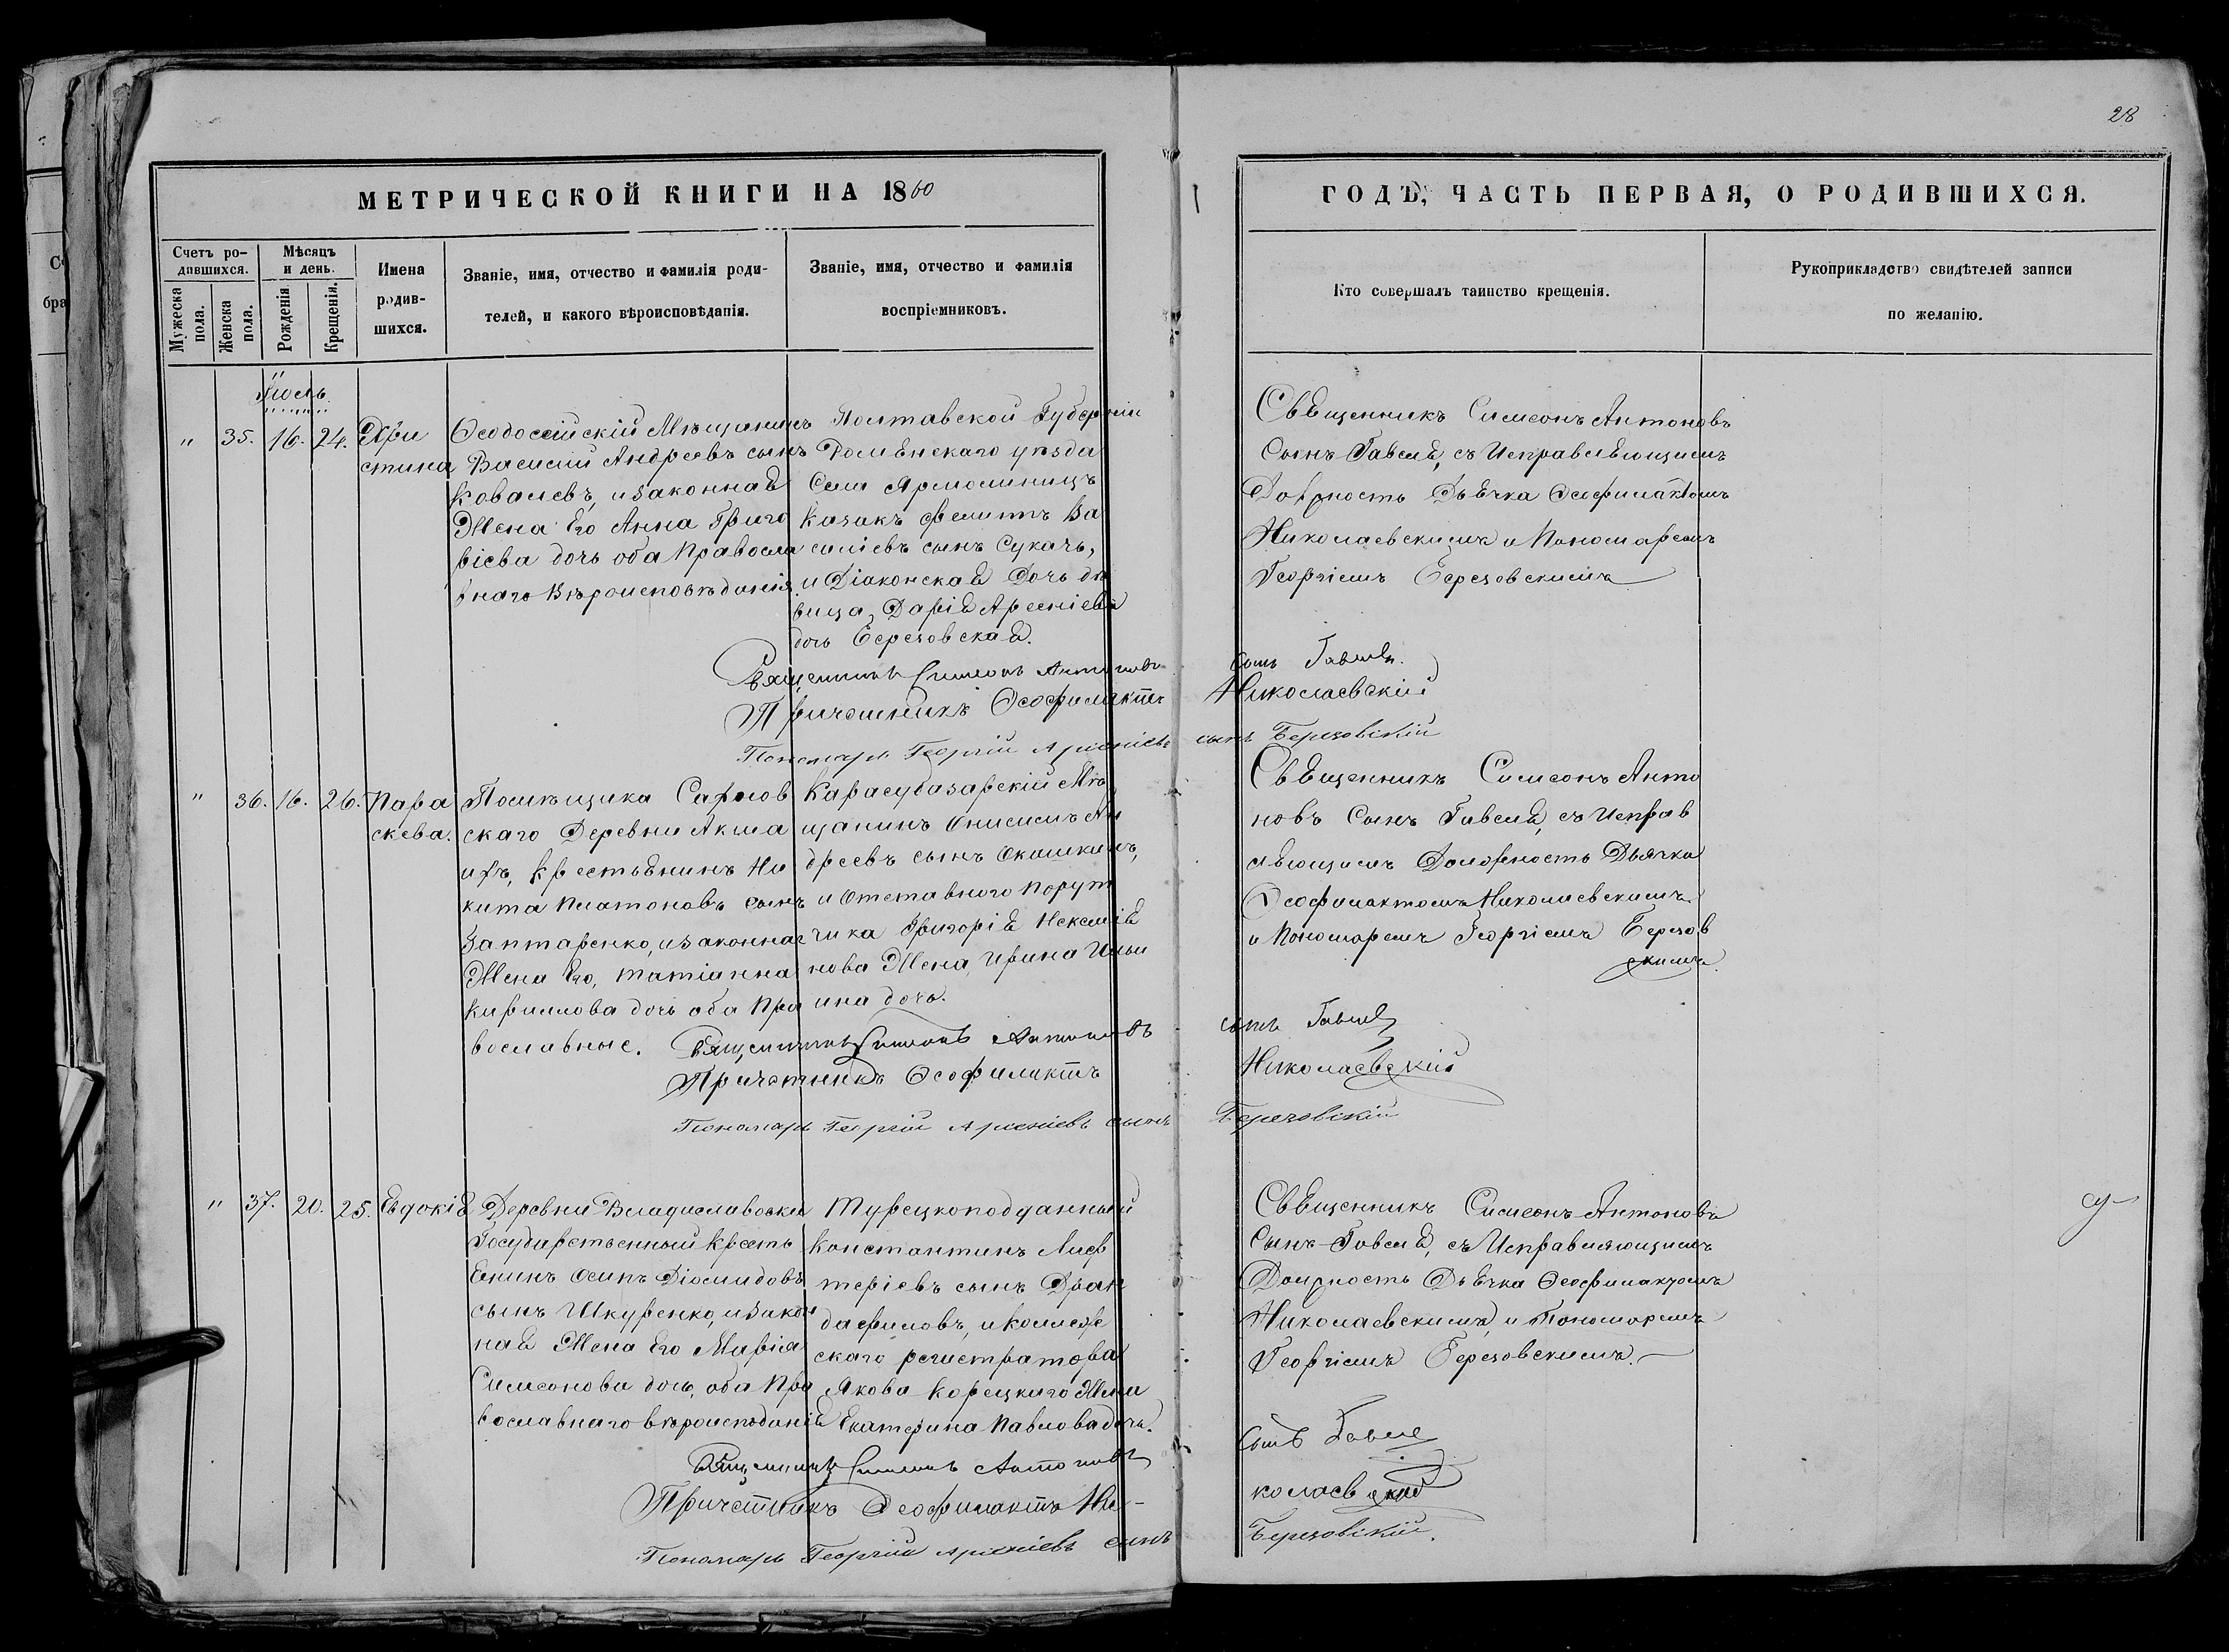 28
МЕТРИЧЕСКОЙ КНИГИ НА 1860
ГОДЪ, ЧАСТЬ ПЕРВАЯ, О РОДИВШИХСЯ.
Счетъ ро-
дившихся.
Мужеска пола.
Женска пола.
Мѣсяцъ
и день.
Рожденія
Крещенія.
Имена
родив-
шихся.
Званіе, имя, отчество и фамилія роди-
телей, и какого вѣроисповѣданія.
Званіе, имя, отчество и фамилія
воспріемниковъ.
Кто совершалъ таинство крещенія.
Рукоприкладство свидѣтелей записи
по желанію.
Іюль
" 35. 16. 24.
Хри
стина
Ѳеодосійскій Мѣщанинъ
Василій Андреевъ сынъ
Ковалевъ, и законная
Жена Его Анна Григо
ріева дочь оба Правосла
внаго Вѣроисповѣданія.
Полтавской Губерніи
Роменскаго уѣзда
Села Ярмолинцъ
Казакъ Филиппъ Ва
силіевъ сынъ Сукачь,
и Діаконская Дочь дѣ
вица, Дарія Арсеніева
дочь Березовская.
Священникъ Симеонъ Антоновъ
Сынъ Гавеля, съ Исправляющимъ
Должность Дьячка Ѳеофилактомъ
Николаевскимъ и Пономаремъ
Георгіемъ Березовскимъ
Священникъ Симеонъ Антоновъ сынъ Гавеля.
Причетникъ Ѳеофилактъ Николаевскій
Пономарь Георгій Арсеніевъ сынъ Березовскій
" 36. 16. 26.
Пара
скева.
Помѣщика
скаго Деревни Акма
нъ, крестьянинъ Ни
кита Платоновъ сынъ
Заптаренко, и законная
Жена Его, Татіанна
Кириллова дочь оба Пра
вославные.
Карасубазарскій Мѣ
щанинъ Онисимъ Ан
дреевъ сынъ Окашкинъ,
и Отставного Порут
чика Григорія
нова Жена, Ирина Ильи
ина дочь.
Священникъ Симеонъ Анто
новъ Сынъ Гавеля, съ Исправ
ляющимъ Должность Дьячка
Ѳеофилактомъ Николаевскимъ
и Пономаремъ Георгіемъ Березов
скимъ.
Священникъ Симеонъ Антоновъ сынъ Гавеля
Причетникъ Ѳеофилактъ Николаевскій
Пономарь Георгій Арсеніевъ сынъ Березовскій
" 37. 20. 25.
Евдокія
Деревни Владиславовки
Государственный Кресть
янинъ Осипъ Діомидовъ
сынъ Шкуренко, и закон
ная Жена Его Марія
Симеонова дочь, оба Пра
вославнаго вѣроисподанія
Турецкоподданный
Константинъ Лиф
теріевъ сынъ Дран
дафиловъ, и Коллеж
скаго регистратора
Якова Корецкаго Жена
Екатерина Павлова дочь.
Священникъ Симеонъ Антоновъ
Сынъ Гавеля, съ Исправляющимъ
Должность Дьячка Ѳеофилактомъ
Николаевскимъ, и Пономаремъ
Георгіемъ Березовскимъ.
Священникъ Симеонъ Антоновъ Сынъ Гавеля
Причетникъ Ѳеофилактъ Ни-колаевскій
Пономарь Георгій Арсеніевъ сынъ Березовскій.